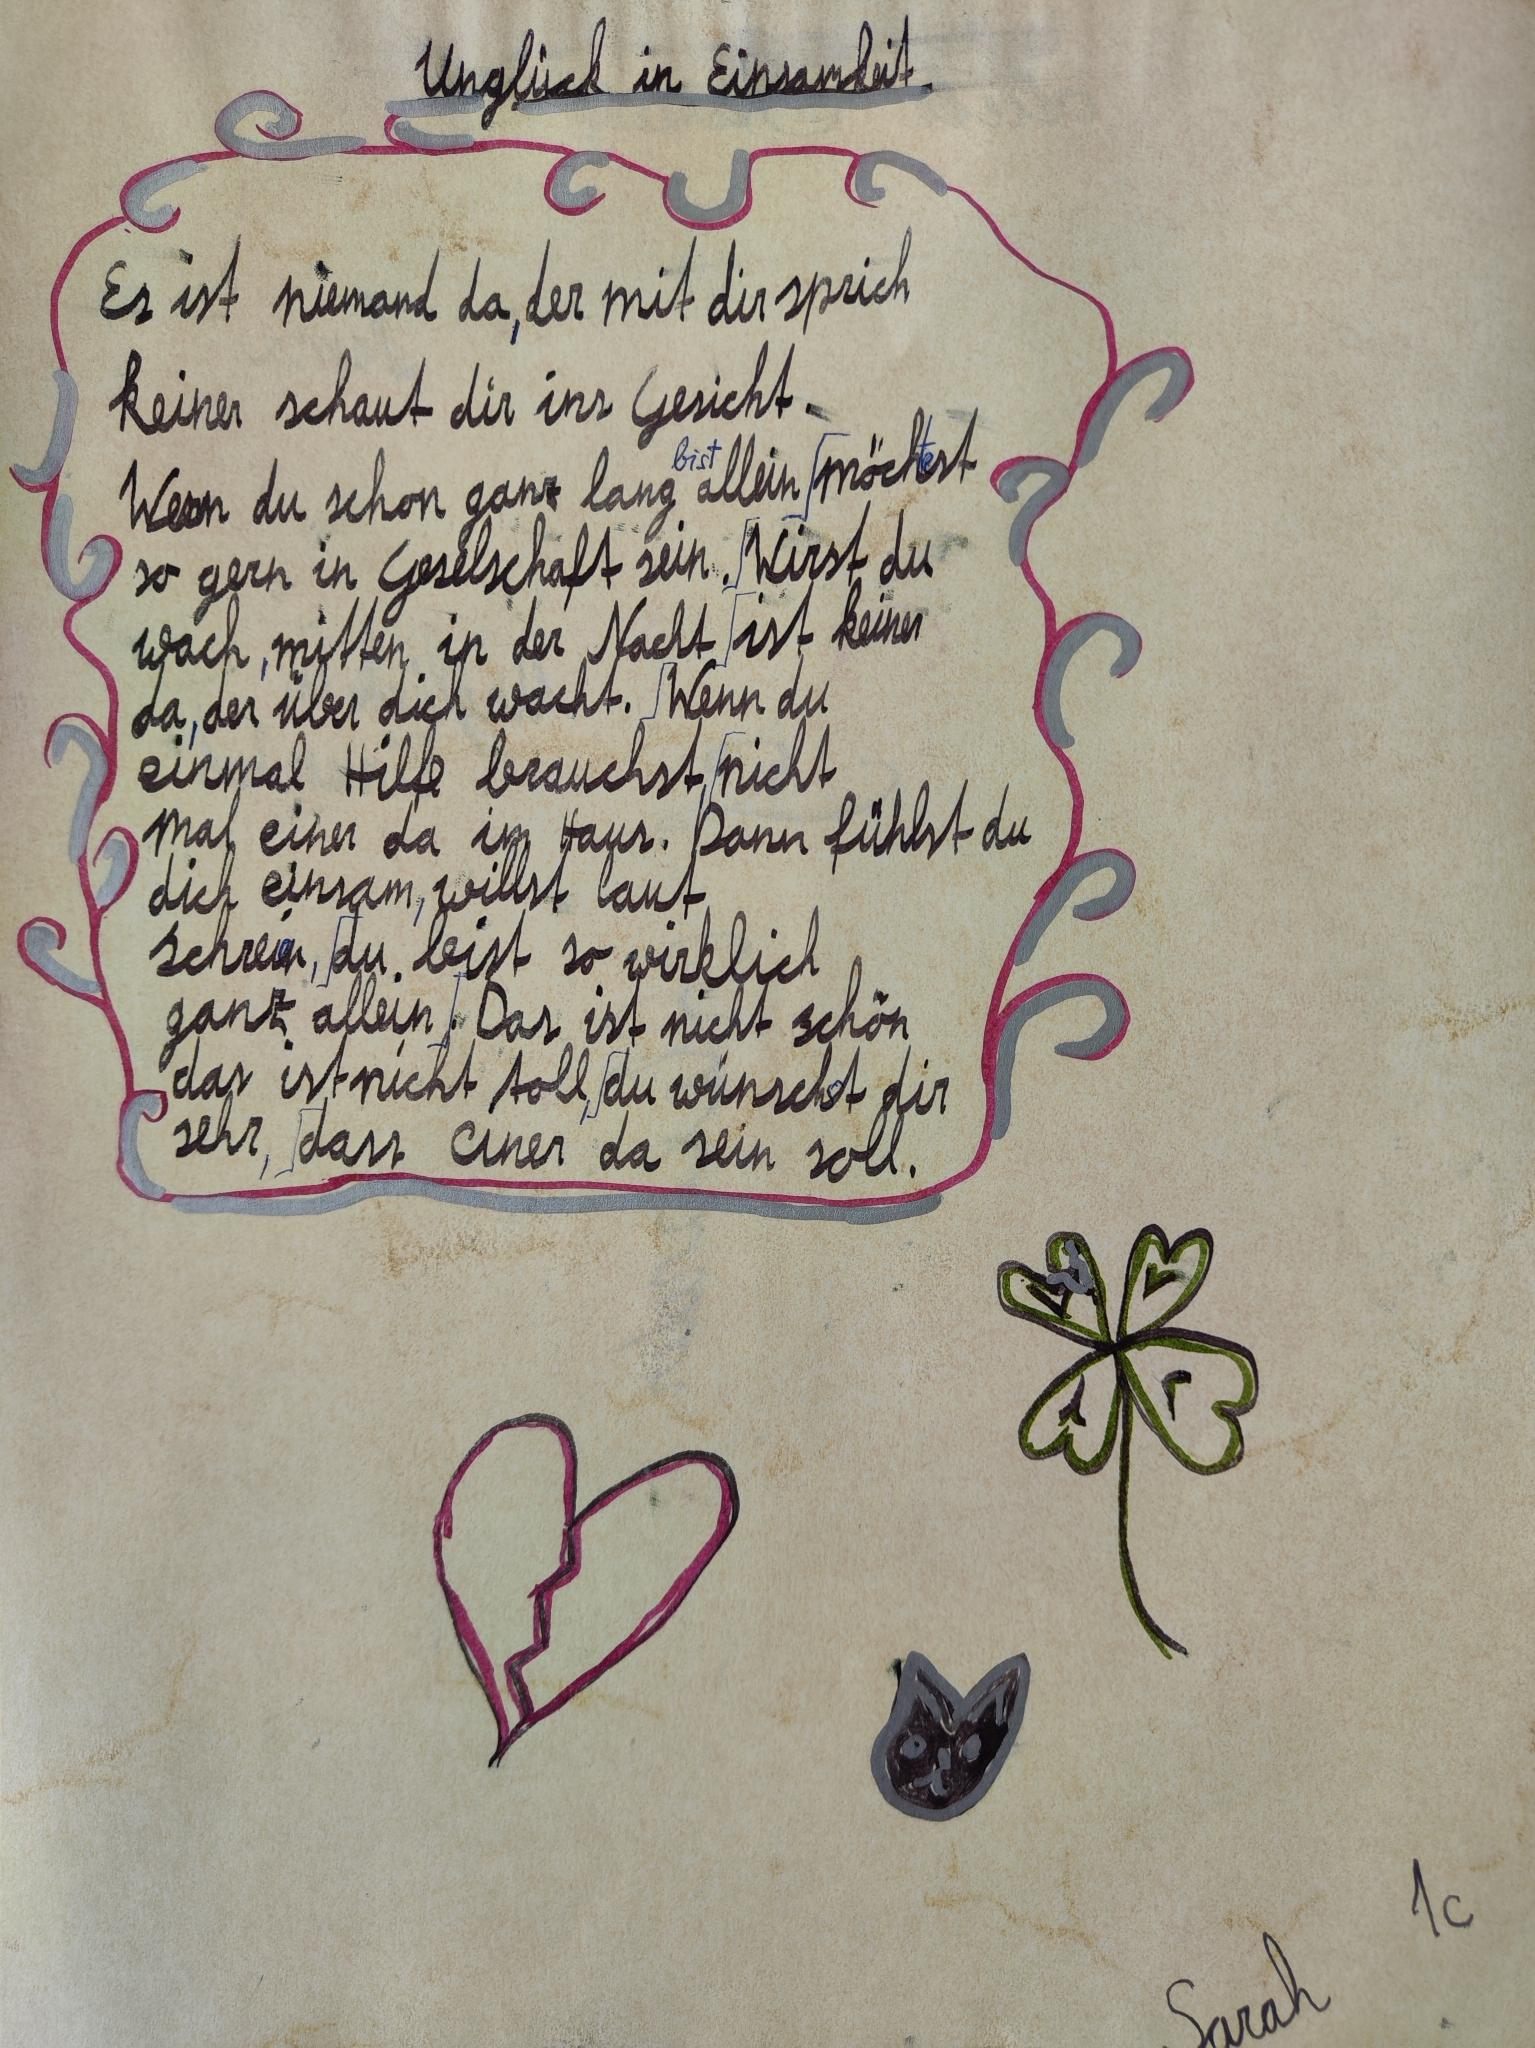 Unglück in Einsamkeit.
Es ist niemand da, der mit dir sprich
keiner schaut dir ins Gesicht.
Wenn du schon ganz lang bist allein möchtest
so gern in Geselschaft sein. Wirst du
wach, mitten in der Nacht, ist keiner
da, der über dich wacht. Wenn du
einmal Hilfe brauchst, nicht
mal einer da im Haus. Dann fühlst du
dich einsam, willst laut
schrein, du bist so wirklich
ganz allein. Das ist nicht schön
das ist nicht toll, du wünschst dir
sehr, dass einer da sein soll.
1c
Sarah